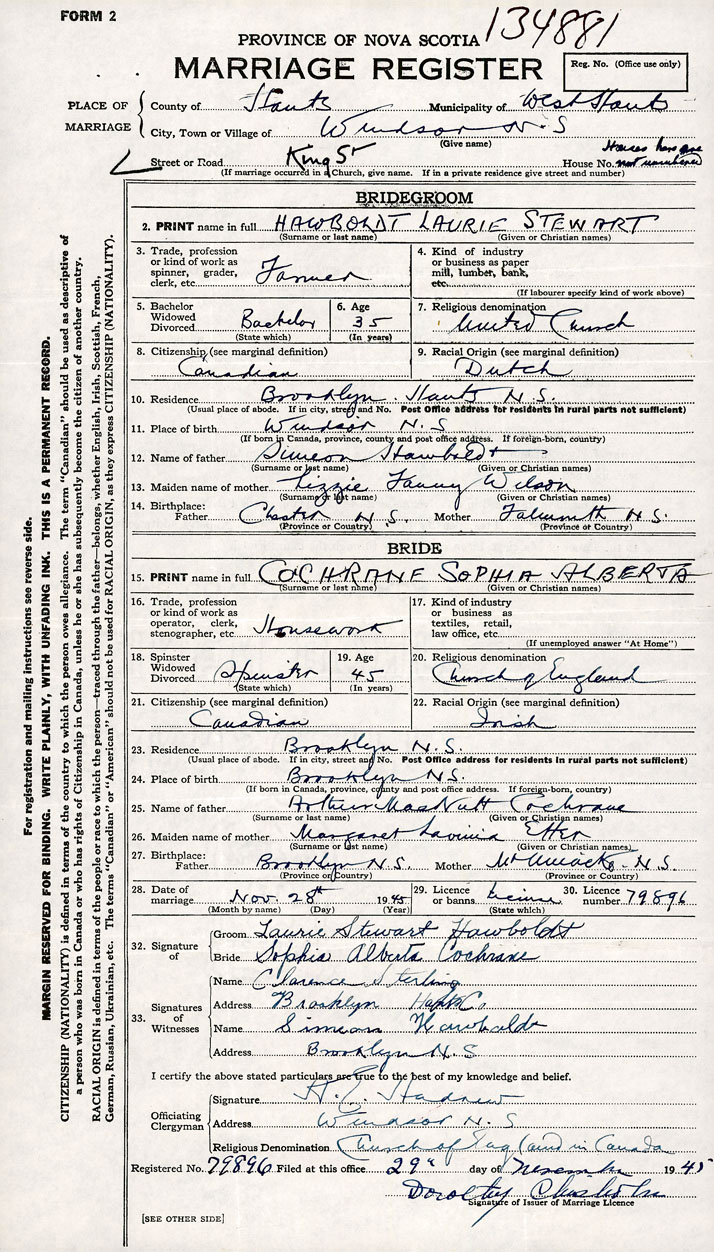 FORM 2
134881
PROVINCE OF NOVA SCOTIA
MARRIAGE REGISTER
Reg. No. (Office use only)
PLACE OF MARRIAGE
County of Hants Municipality of West Hants
City, Town or Village of Windsor N.S
(Give name)
Houses here are
Street or Road King St House No. not numbered
(If marriage occurred in a Church, give name. If in a private residence give street and number)
BRIDEGROOM
2. PRINT name in full HAWBOLDT LAURIE STEWART
(Surname or last name) (Given or Christian names)
3. Trade, profession or kind of work as spinner, grader, clerk, etc. Farmer
4. Kind of industry or business as paper mill, lumber, bank, etc.
(If labourer specify kind of work above)
5. Bachelor Widowed Divorced Bachelor (State which)
6. Age 35 (In years)
7. Religious denomination United Church
8. Citizenship (see marginal definition) Canadian
9. Racial Origin (see marginal definition) Dutch
10. Residence Brooklyn Hants N.S.
(Usual place of abode. If in city, street and No. Post Office address for residents in rural parts not sufficient)
11. Place of birth Windsor N.S
(If born in Canada, province, county and post office address. If foreign-born, country)
12. Name of father Simeon Hawboldt
(Surname or last name) (Given or Christian names)
13. Maiden name of mother Lizzie Fanny Wilson
(Surname or last name) (Given or Christian names)
14. Birthplace: Father Chester N.S. Mother Falmouth N.S.
(Province or Country) (Province or Country)
BRIDE
15. PRINT name in full COCHRANE SOPHIA ALBERTA
(Surname or last name) (Given or Christian names)
16. Trade, profession or kind of work as operator, clerk, stenographer, etc. Housework
17. Kind of industry or business as textiles, retail, law office, etc.
(If unemployed answer "At Home")
18. Spinster Widowed Divorced Spinster (State which)
19. Age 45 (In years)
20. Religious denomination Church of England
21. Citizenship (see marginal definition) Canadian
22. Racial Origin (see marginal definition) Irish
23. Residence Brooklyn N.S.
(Usual place of abode. If in city, street and No. Post Office address for residents in rural parts not sufficient)
24. Place of birth Brooklyn NS.
(If born in Canada, province, county and post office address. If foreign-born, country)
25. Name of father Arthur MacNutt Cochrane
(Surname or last name) (Given or Christian names)
26. Maiden name of mother Margaret Lavinia Etter
(Surname or last name) (Given or Christian names)
27. Birthplace: Father Brooklyn N.S. Mother Mt Uniacke N.S.
(Province or Country) (Province or Country)
28. Date of marriage Nov. 28th 1945
(Month by name) (Day) (Year)
29. Licence or banns (State which)
30. Licence number 79896
32. Signature of
Groom Laurie Stewart Hawboldt
Bride Sophia Alberta Cochrane
33. Signatures of Witnesses
Name Clarence Sterling
Address Brooklyn Hants Co.
Name Simeon Hawboldt
Address Brooklyn N.S
I certify the above stated particulars are true to the best of my knowledge and belief.
Officiating Clergyman
Signature
Address Windsor N.S
Religious Denomination Church of England in Canada
Registered No. 79896 Filed at this office 29th day of November 1945
Dorothy Chisholm
Signature of Issuer of Marriage Licence
[SEE OTHER SIDE]
For registration and mailing instructions see reverse side.
MARGIN RESERVED FOR BINDING. WRITE PLAINLY, WITH UNFADING INK. THIS IS A PERMANENT RECORD.
CITIZENSHIP (NATIONALITY) is defined in terms of the country to which the person owes allegiance. The term "Canadian" should be used as descriptive of
a person who was born in Canada or who has rights of Citizenship in Canada, unless he or she has subsequently become the citizen of another country.
RACIAL ORIGIN is defined in terms of the people or race to which the person—traced through the father—belongs, whether English, Irish, Scottish, French,
German, Russian, Ukrainian, etc. The terms "Canadian" or "American" should not be used for RACIAL ORIGIN, as they express CITIZENSHIP (NATIONALITY).